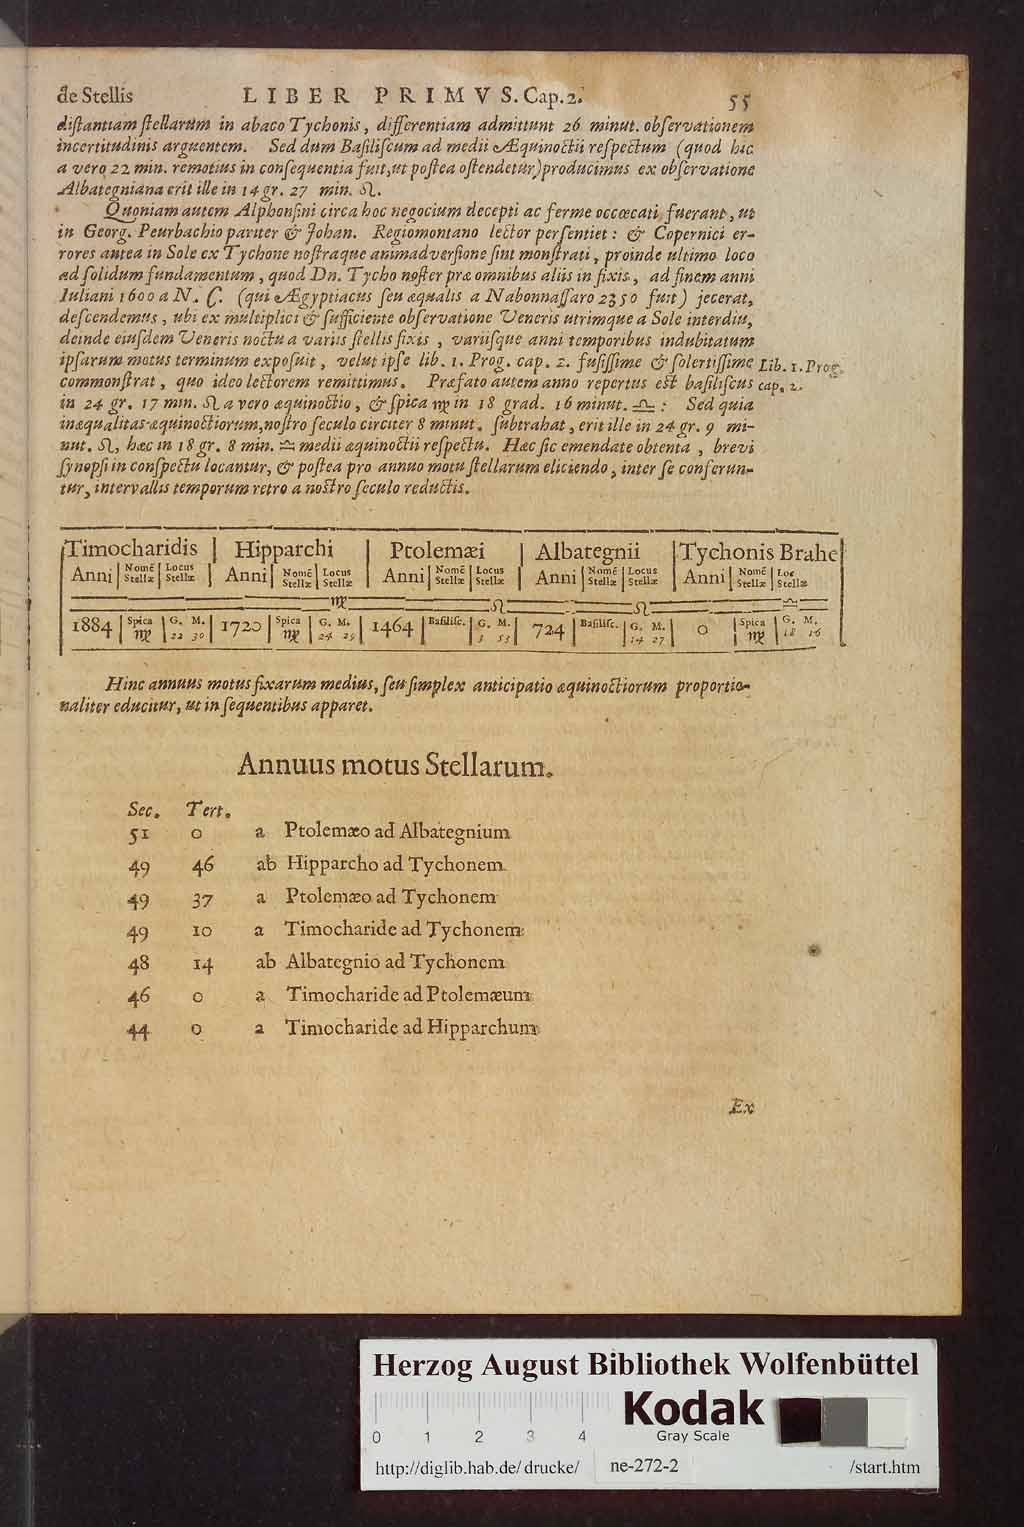 de Stellis LIBER PRIMVS. Cap. 2. 55
distantiam stellarum in abaco Tychonis, differentiam admittunt 26 minut. observationem
incertitudinis arguentem. Sed dum Basiliscum ad medii Æquinoctii respectum (quod hic
a vero 22 min. remotius in consequentia fuit, ut postea ostendetur) producimus ex observatione
Albategniana erit ille in 14 gr. 27 min. ♌.
Quoniam autem Alphonsini circa hoc negocium decepti ac ferme occœcati fuerant, ut
in Georg. Peurbachio pariter & Johan. Regiomontano lector persentiet: & Copernici er-
rores antea in Sole ex Tychone nostraque animadversione sint monstrati, proinde ultimo loco
ad solidum fundamentum, quod Dn. Tycho noster præ omnibus aliis in fixis, ad finem anni
Iuliani 1600 a N. C. (qui Ægyptiacus seu æqualis a Nabonnassaro 2350 fuit) jecerat,
descendemus, ubi ex multiplici & sufficiente observatione Veneris utrimque a Sole interdiu,
deinde eiusdem Veneris noctu a variis stellis fixis, variisque anni temporibus indubitatum
ipsarum motus terminum exposuit, velut ipse lib. 1. Prog. cap. 2. fusissime & solertissime Lib. 1. Prog.
commonstrat, quo ideo lectorem remittimus. Præfato autem anno repertus est basiliscus cap. 2.
in 24 gr. 17 min. ♌ a vero æquinoctio, & spica ♍ in 18 grad. 16 minut. ♎: Sed quia
inæqualitas æquinoctiorum, nostro seculo circiter 8 minut. subtrahat, erit ille in 24 gr. 9 mi-
nut. ♌, hæc in 18 gr. 8 min. ♎ medii æquinoctii respectu. Hæc sic emendate obtenta, brevi
synopsi in conspectu locantur, & postea pro annuo motu stellarum eliciendo, inter se conferun-
tur, intervallis temporum retro a nostro seculo reductis.
Timocharidis Hipparchi Ptolemæi Albategnii Tychonis Brahe
Anni Nomē Stellæ Locus Stellæ Anni Nomē Stellæ Locus Stellæ Anni Nomē Stellæ Locus Stellæ Anni Nomē Stellæ Locus Stellæ Anni Nomē Stellæ Loc Stellæ
♍ ♌ ♌ ♎
1884 Spica ♍ G. M. 22 30 1720 Spica ♍ G. M. 24 29 1464 Basilisc. G. M. 3 53 724 Basilisc. G. M. 14 27 0 Spica ♍ G. M. 18 16
Hinc annuus motus fixarum medius, seu simplex anticipatio æquinoctiorum proportio-
naliter educitur, ut in sequentibus apparet.
Annuus motus Stellarum.
Sec. Tert.
51 0 a Ptolemæo ad Albategnium
49 46 ab Hipparcho ad Tychonem
49 37 a Ptolemæo ad Tychonem
49 10 a Timocharide ad Tychonem
48 14 ab Albategnio ad Tychonem
46 0 a Timocharide ad Ptolemæum
44 0 a Timocharide ad Hipparchum
Ex
Herzog August Bibliothek Wolfenbüttel
Kodak
Gray Scale
0 1 2 3 4
http://diglib.hab.de/drucke/ ne-272-2 /start.htm